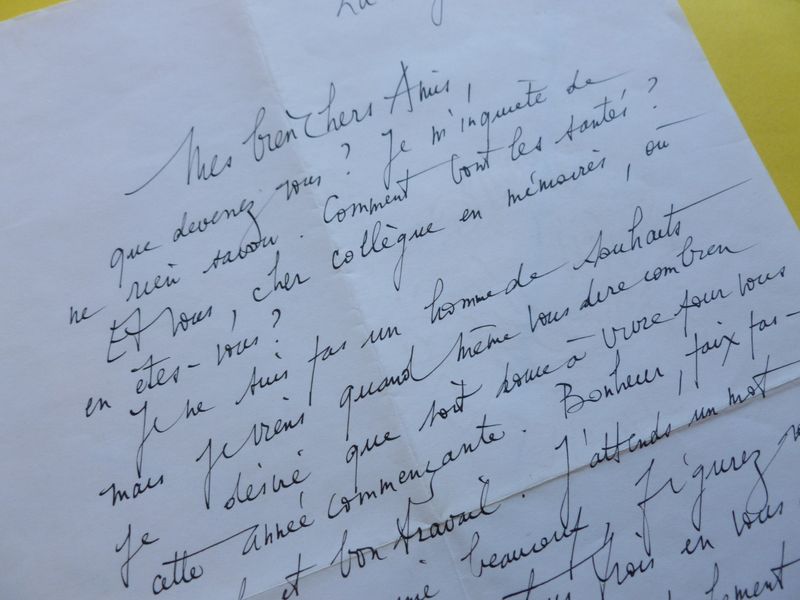 Mes bien Chers Amis,
que devenez vous ? Je m'inquiète de
ne rien savoir. Comment vont les santés ?
Et vous, cher collègue en mémoires, où
en êtes-vous ?
Je ne suis pas un homme de souhaits
mais je viens quand même vous dire combien
je désire que soit bonne à vivre pour vous
cette année commençante. Bonheur, paix pas-
et bon travail. J'attends un mot
beaucoup, figurez
fois en vous